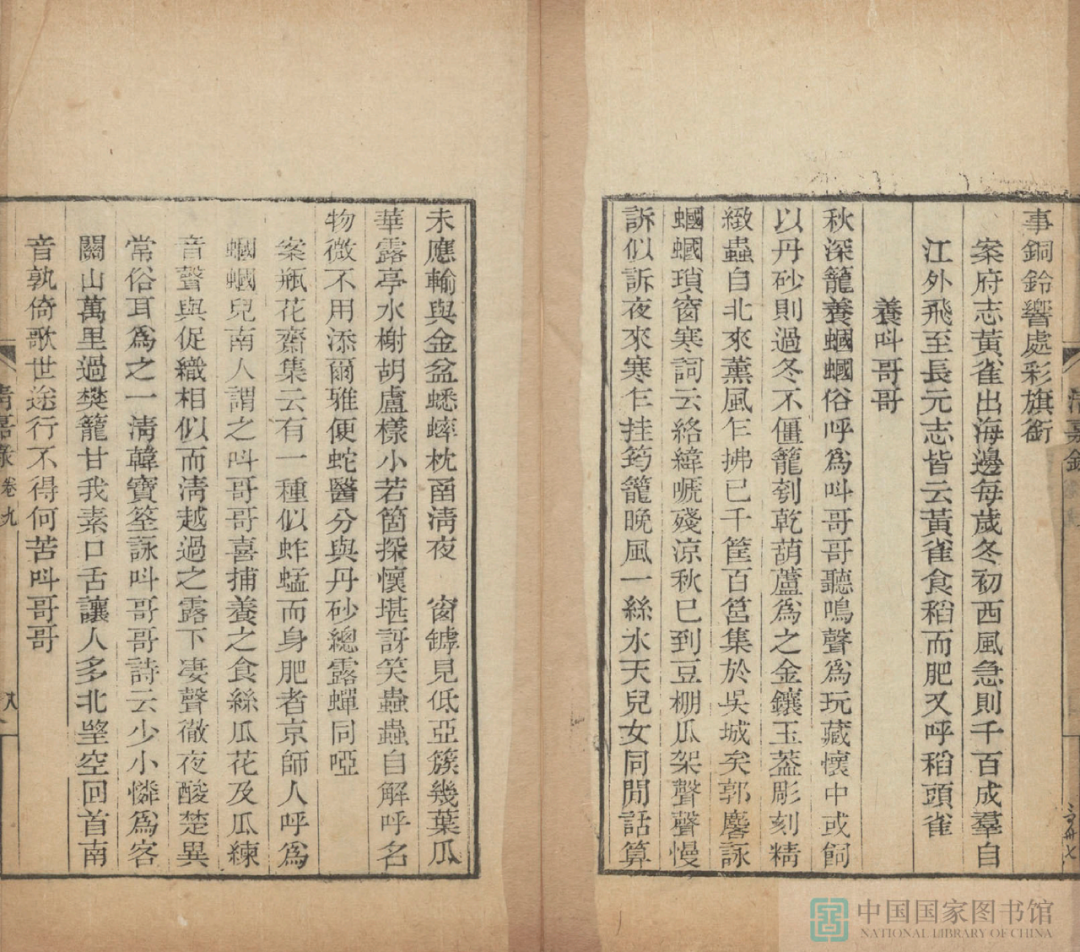 事銅鈴響處彩旗銜
案府志黃雀出海邊每歲冬初西風急則千百成羣自
江外飛至長元志皆云黃雀食稻而肥又呼稻頭雀
養呌哥哥
秋深籠養蟈蟈俗呼爲呌哥哥聽鳴聲爲玩藏懷中或飼
以丹砂則過冬不僵籠刳乾葫蘆爲之金鑲玉葢彫刻精
緻蟲自北來薰風乍拂已千筐百筥集於吳城矣郭麐詠
蟈蟈瑣窗寒詞云絡緯嗁殘涼秋已到豆棚瓜架聲聲慢
訴似訴夜來寒乍挂筠籠晚風一絲水天兒女同閒話算
未應輸與金盆蟋蟀枕㽞淸夜　窗罅見低亞簇幾葉瓜
華露亭水榭胡盧樣小若箇探懷堪訝笑蟲蟲自解呼名
物微不用添爾雅便蛇醫分與丹砂總露蟬同啞
案瓶花齋集云有一種似蚱蜢而身肥者京師人呼爲
蟈蟈兒南人謂之呌哥哥喜捕養之食絲瓜花及瓜練
音聲與促織相似而淸越過之露下凄聲徹夜酸楚異
常俗耳爲之一淸韓寶笙詠呌哥哥詩云少小憐爲客
關山萬里過樊籠甘我素口舌讓人多北望空回首南
音孰倚歌世途行不得何苦呌哥哥
淸嘉录 卷九
八
中国国家图书馆
NATIONAL LIBRARY OF CHINA